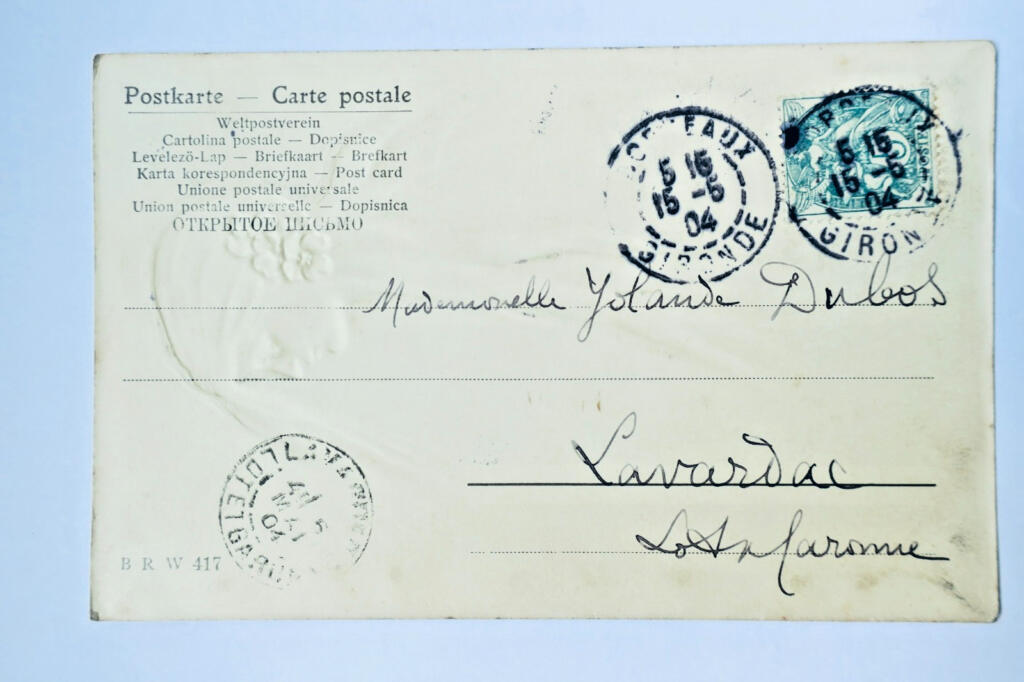 Postkarte — Carte postale
Weltpostverein
Cartolina postale — Dopisnice
Levelező-Lap — Briefkaart — Brefkort
Karta korespondencyjna — Post card
Unione postale universale
Union postale universelle — Dopisnica
ОТКРЫТОЕ ПИСЬМО
BORDEAUX
5 15
15 -5
04
GIRONDE
5 15
15 -5
04
GIRON
Mademoiselle Yolande Dubos
Lavardac
Lot & Garonne
LAVARDAC
MAI
04
LOT ET G
B R W 417